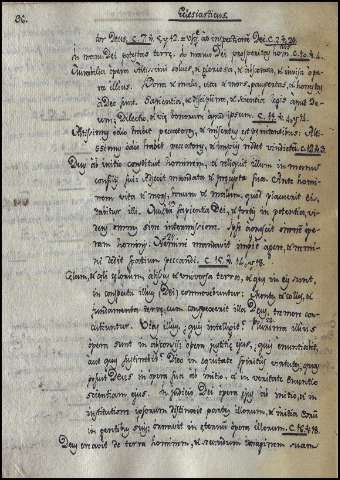 86. Ecclesiasticus.
tor Deus. C. 7. ℣. 5. y 12. = Usq. ad inspectionem Dei. C. 7. ℣. 36.
in manu Dei potestas terræ. in manu Dei prosperitas hominis. C. 10. ℣. 4.
Mirabilia opera Altissimi solius, & gloriosa, & absconsa, & invisa opera
illius. Bona & mala, vita & mors, paupertas, & honestas
à Deo sunt. Sapientia, & disciplina, & scientia legis apud Deum;
Dilectio, & viæ bonorum apud ipsum. C. 11. ℣. 4. y 14.
Altissimus odio habet peccatores, & misertus est pœnitentibus: Altissimus
odio habet peccatores, & impiis reddet vindictam. C. 12. ℣. 3.
Deus ab initio constituit hominem, & reliquit illum in manu
consilii sui: Adjecit mandata & præcepta sua. Ante hominem
vita & mors, bonum & malum, quod placuerit ei,
dabitur illi. Multa sapientia Dei, & fortis in potentia, videns
omnes sine intermissione. Ipse agnoscit omnem operam
hominis. Nemini mandavit impiè agere, & nemini
dedit spatium peccandi. C. 15. ℣. 14. y 18.
Cœlum, & cœli cœlorum, abyssus & universa terra, & quæ in eis sunt,
in conspectu illius (Dei) commovebuntur: Montes, & colles, &
fundamenta terræ, cum conspexerit illa Deus, tremore concutientur.
Vias illius, quis intelligit? Plurima illius
opera sunt in absconsis: opera justitiæ ejus, quis enuntiabit,
aut quis sustinebit? Dico in æquitate spiritus virtutes, quas
posuit Deus in opera sua ab initio, & in veritate enuntio
scientiam ejus. In judicio Dei opera ejus ab initio, & in
institutione ipsorum distinxit partes illorum, & initia eorum
in gentibus suis; ornavit in æternum opera illorum. C. 16. ℣. 18.
Deus creavit de terra hominem, & secundum imaginem suam